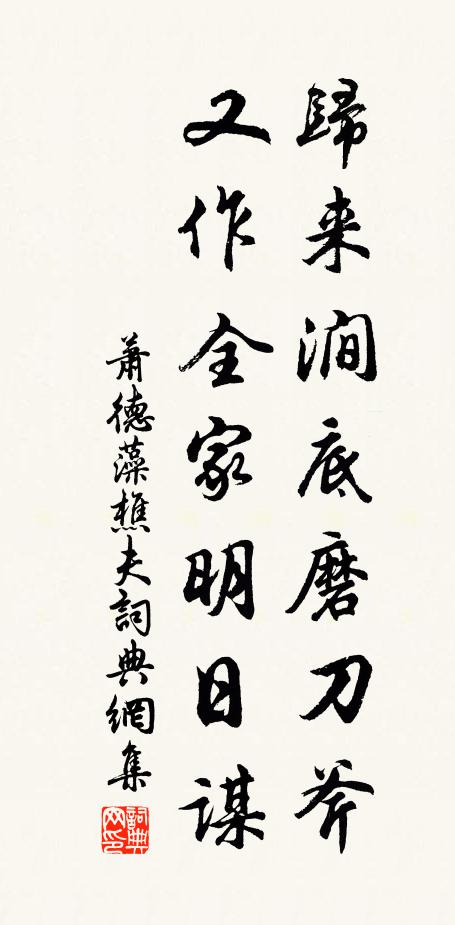 歸来澗底磨刀斧
又作全家明日謀
蕭德藻樵夫詞典網集
詞典网印